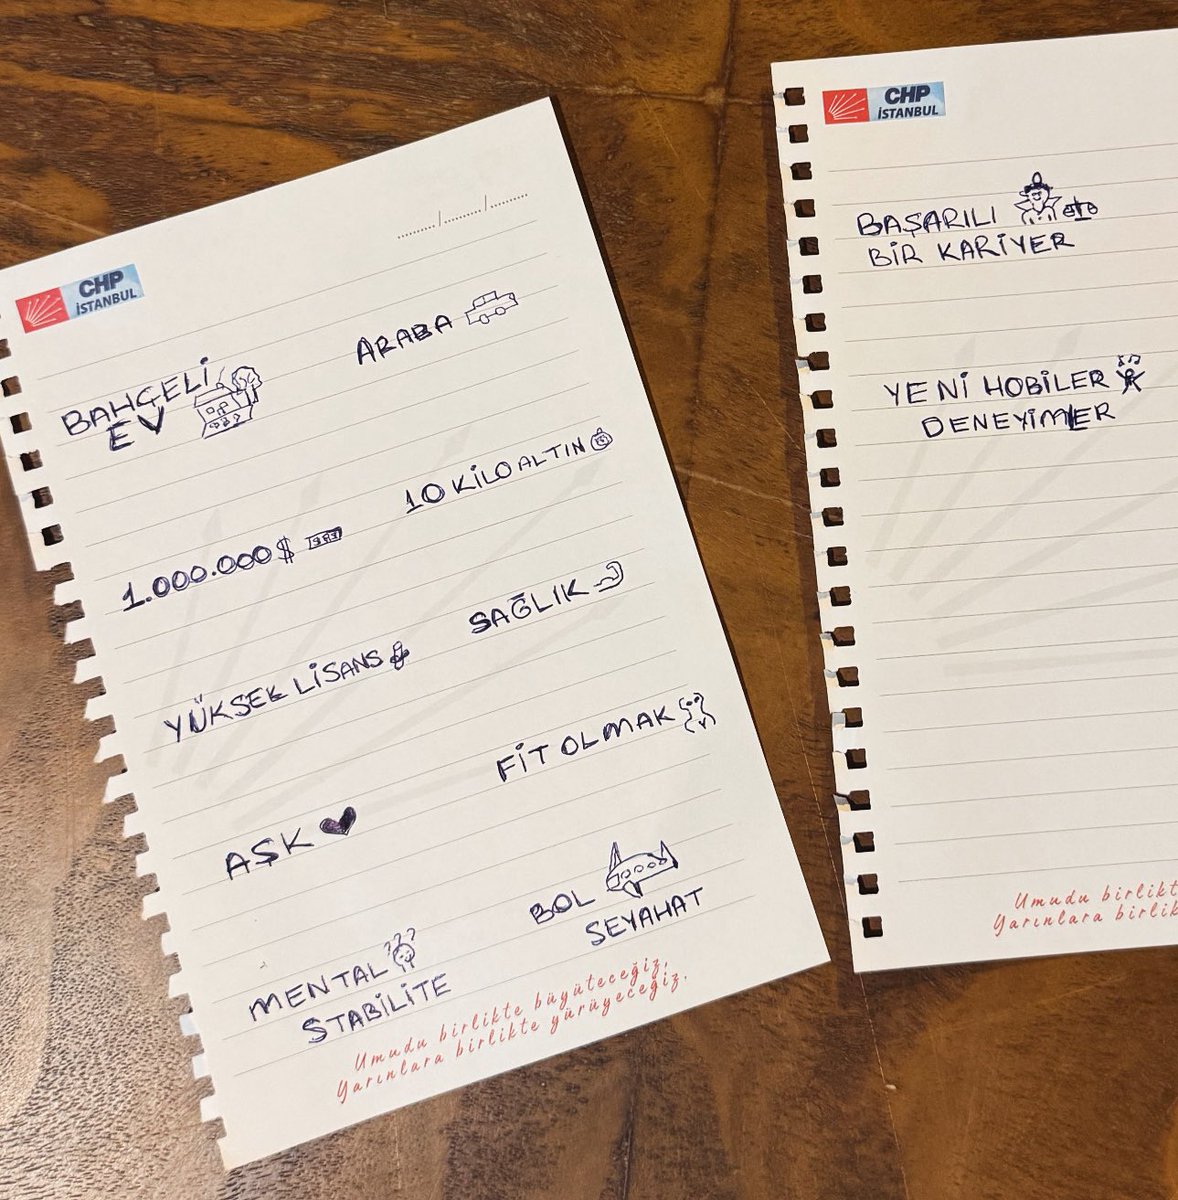 CHP
İSTANBUL
BAHÇELİ
EV
ARABA
1.000.000 $
10 KİLO ALTIN
YÜKSEK LİSANS
SAĞLIK
AŞK
FİT OLMAK
MENTAL
STABİLİTE
BOL
SEYAHAT
Umudu birlikte büyüteceğiz,
Yarınlara birlikte yürüyeceğiz.
CHP
İSTANBUL
BAŞARILI
BİR KARİYER
YENİ HOBİLER
DENEYİMLER
Umudu birlikt
Yarınlara birlik